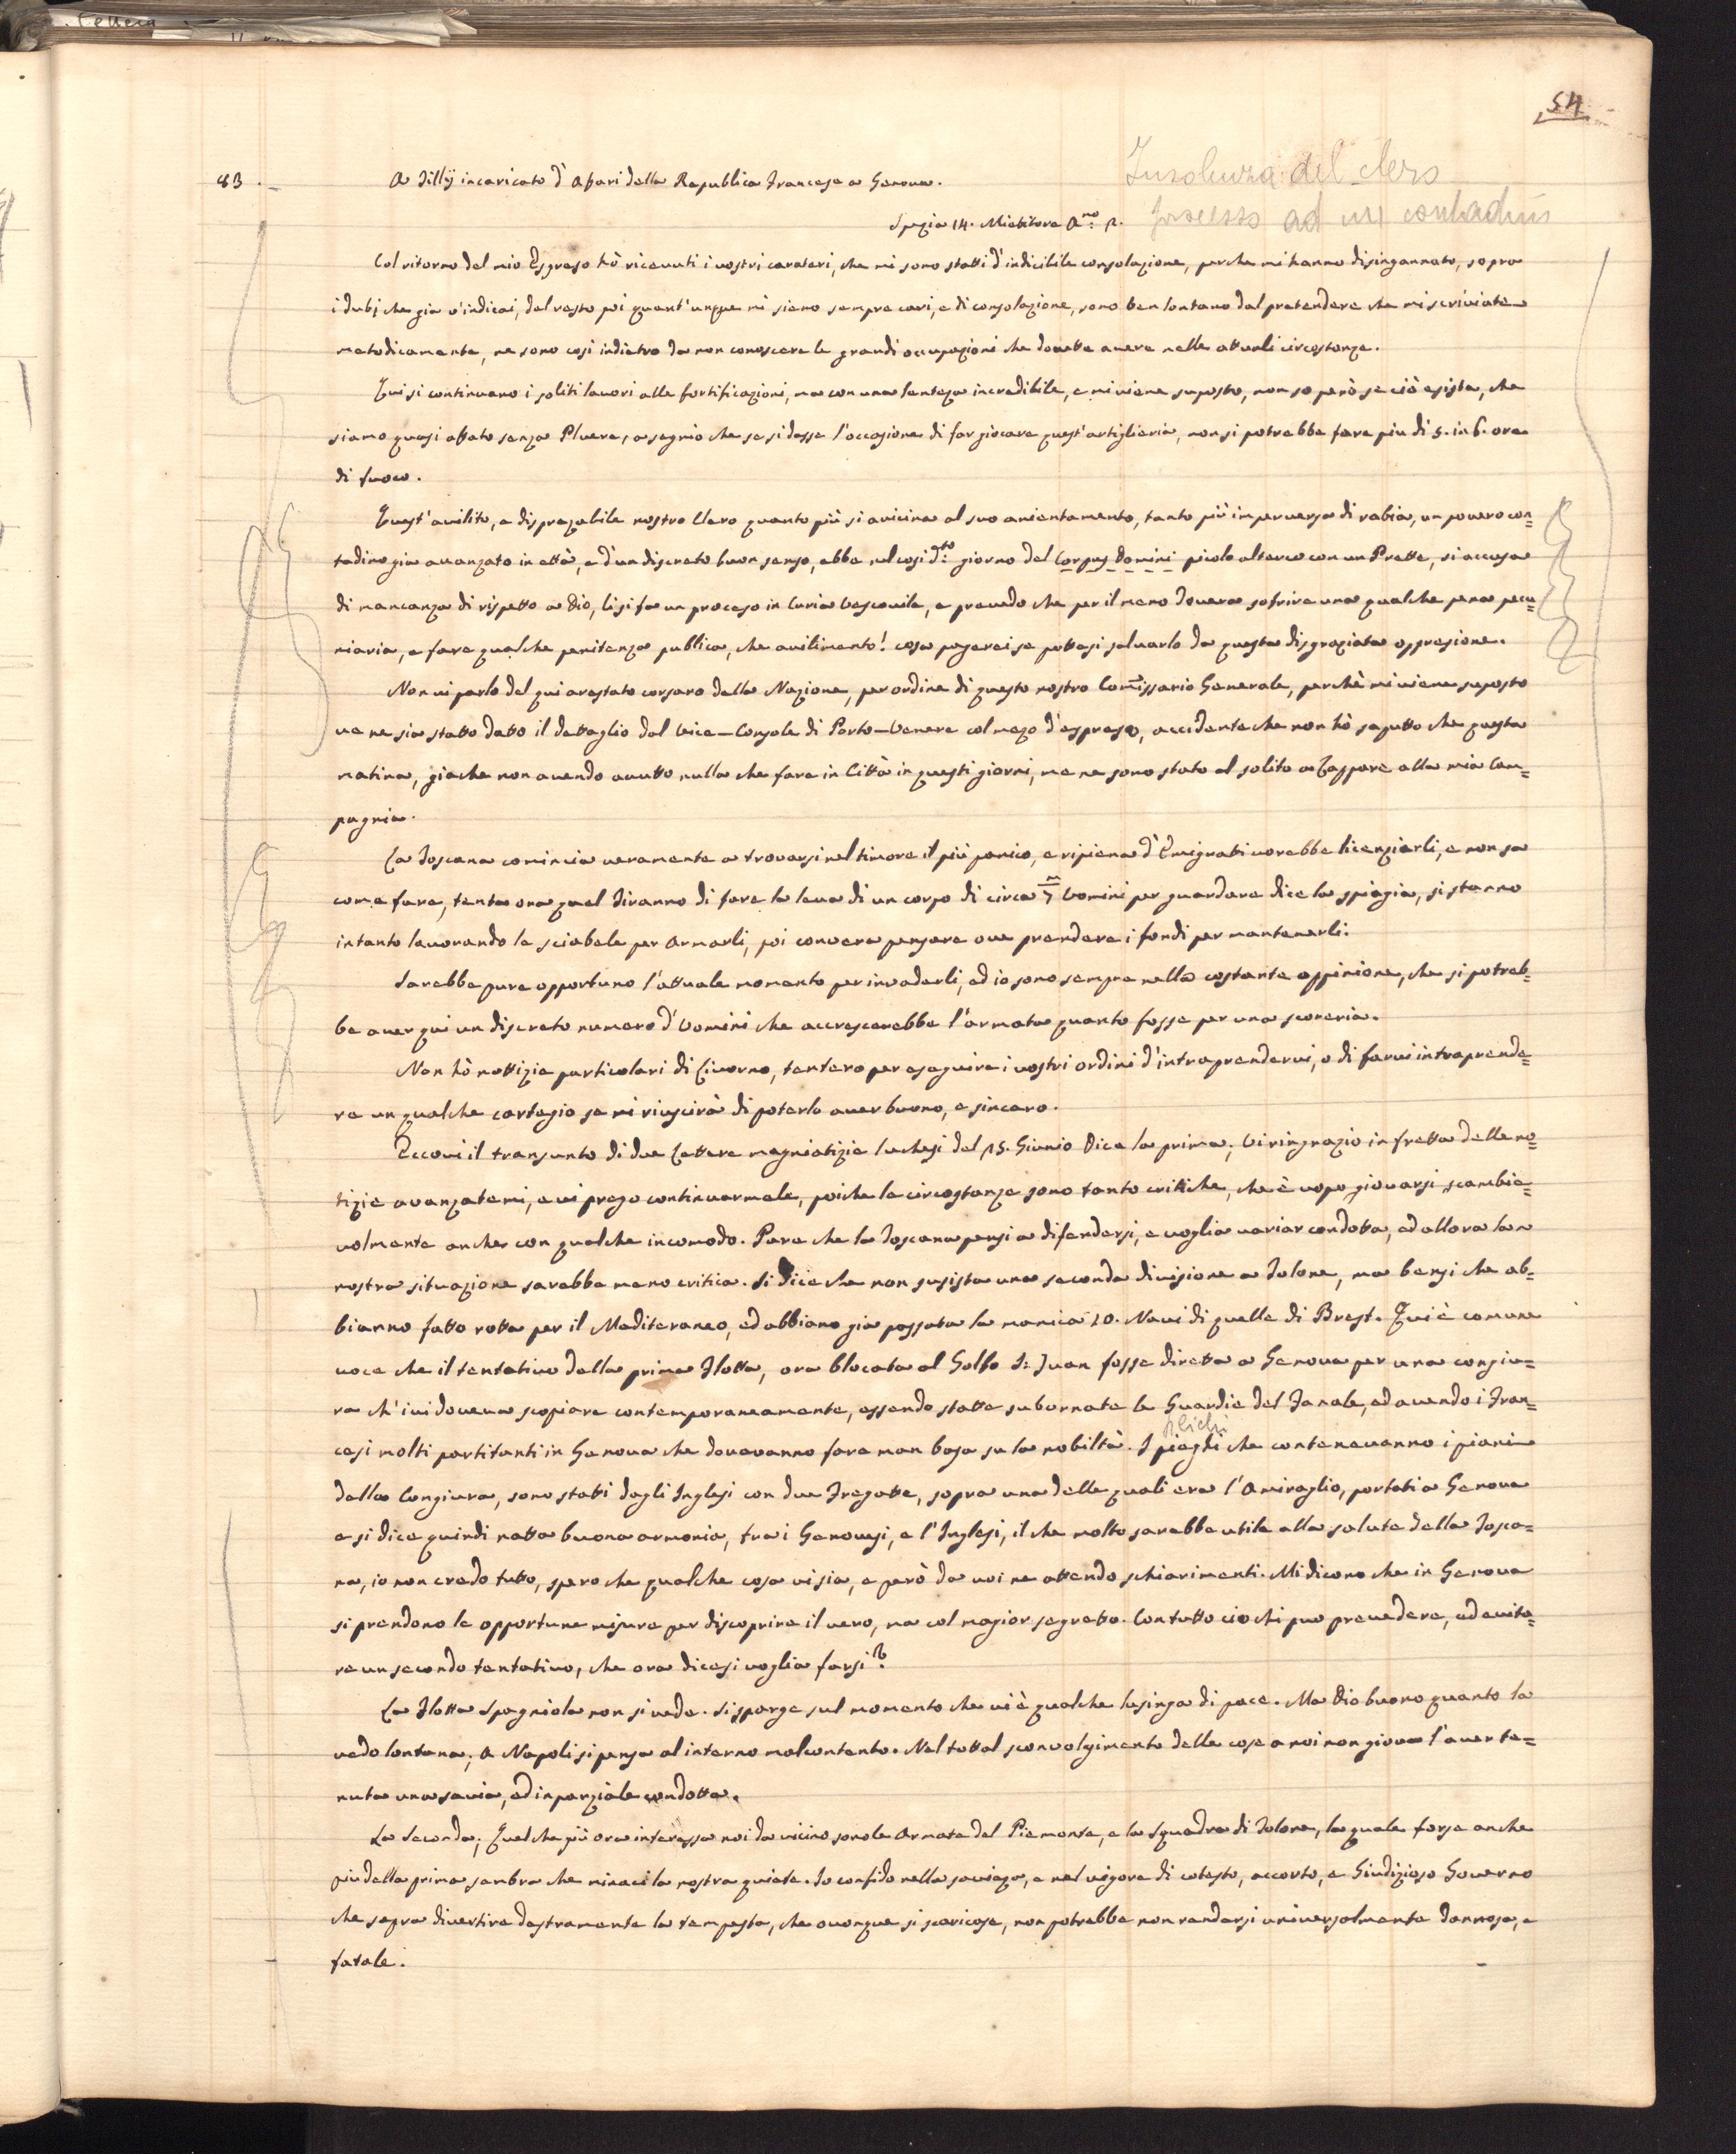 54
Insolenza del clero
processo ad un contadino
83. A Tillÿ incaricato d'Afari della Republica Francese a Genova.
Spezia 14. Mietitore A.no 2.
Col ritorno del mio Espreso hò ricevuti i vostri carateri, che mi sono statti d'indicibile consolazione, perche mi hanno disingannato, sopra
i dubj che gia v'indicai, del resto poi quant'unque mi sieno sempre cari, e di consolazione, sono ben lontano dal pretendere che mi scriviate
metodicamente, ne sono cosi indietro da non conoscere le grandi occupazioni che dovette avere nelle attuali circostanze.
Qui si continuano i soliti lavori alle fortificazioni, ma con una lenteza incredibile, e mi viene suposto, non so però se ciò esista, che
siamo quasi affato senza Pluere, a segnio che se si dasse l'occasione di far giocare quest'artiglieria, non si potrebbe fare piu di 5. in 6. ore
di fuoco.
Quest'avilito, e disprezabile nostro Clero quanto più si avicina al suo anientamento, tanto più imperversa di rabia, un povero con=
tadino gia avanzato in ettà, e d'un discreto buon senso, ebbe nel cosi d.to giorno del Corpus Domini picolo alterco con un Prette, si accusa
di mancanza di rispetto a Dio, li si fa un proceso in Curia Vescovile, e prevedo che per il meno dovera sofrire una qualche pena pecu=
niaria, e fare qualche penitenza publica, che avilimento! cosa pagerei se pottesi salvarlo da questa disgraziata oppresione.
Non vi parlo del qui arestato corsaro della Nazione, per ordine di questo nostro Comissario Generale, perchè mi viene suposto
ve ne sia statto datto il dettaglio dal Vice-Console di Porto-Venere col mezo d'espreso, accidente che non hò saputto che questa
matina, giache non avendo avutto nulla che fare in Città in questi giorni, me ne sono stato al solito a Zappare alla mia Cam=
pagnia.
La Toscana comincia veramente a trovarsi nel timore il più panico, e ripiena d'Emigrati vorebbe licenziarli, e non sa
come fare, tenta ora quel Tiranno di fare la leva di un corpo di circa 7 m Uomini per guardare dice la spiagia, si stanno
intanto lavorando le sciabele per armarli, poi convera pensare ove prendere i fondi per mantenerli.
Sarebbe pure opportuno l'attuale momento per invaderli, ed io sono sempre nella costante oppinione, che si potreb=
be aver qui un discreto numero d'Uomini che accrescerebbe l'armata quanto fosse per una scoreria.
Non hò nottizie particolari di Livorno, tentero per eseguire i vostri ordini d'intraprendervi, o di farvi intraprende=
re un qualche cartegio se mi riuscirà di poterlo aver buono, e sincero.
Eccovi il transunto di due Lettere magniatizie luchesi del 25. Giunio Dice la prima; Vi ringrazio in fretta delle no=
tizie avanzatemi, e vi prego continuarmele, poiche le circostanze sono tanto critiche, che è uopo giovarsi scambie=
volmente anche con qualche incomodo. Pare che la Toscana pensi a difendersi, e voglia variar condotta, ed allora la
nostra situazione sarebbe meno critica. Si dice che non susista una seconda divisione a Tolone, ma bensi che ab=
bianno fatto rotta per il Mediteraneo, ed abbiano gia passata la manica 20. Navi di quelle di Brest. Qui è comune
voce che il tentativo della prima Flotta, ora blocata al Golfo S: Juan fosse diretta a Genova per una congiu=
ra ch'ivi doveva scopiare contemporaneamente, essendo statte subornate le Guardie del Fanale, ed avendo i Fran=
cesi molti partitanti in Genova che dovevanno fare man basa su la nobiltà. I pieghi che contenevanno i piani
plichi
della Congiura, sono stati dagli Inglesi con due Fregatte, sopra una delle quali era l'Amiraglio, portati a Genova
e si dice quindi natta buona armonia, fra i Genovesi, e l'Inglesi, il che molto sarebbe utile alla salute della Tosca=
na, io non credo tutto, spero che qualche cosa vi sia, e però da voi ne attendo schiarimenti. Mi dicono che in Genova
si prendono le opportune misure per discoprire il vero, ma col magior segretto. Con tutto cio chi puo prevedere, ed evita=
re un secondo tentativo, che ora dicesi voglia farsi?
La Flotta Spagniola non si vede. Si sparge sul momento che vi è qualche lusinga di pace. Ma Dio buono quanto la
vedo lontana; A Napoli si pensa al interno malcontento. Nel tottal sconvolgimento delle cose a noi non giova l'aver te=
nuta una savia, ed inparziale condotta.
La Seconda; Quel che più ora interessa noi da vicino sono le Armate del Piemonte, e la Squadra di Tolone, la quale forse anche
piu della prima sembra che minaci la nostra quiete. Io confido nella savieza, e nel vigore di cotesto, accorto, e Giudizioso Governo
che sapra divertire destramente la tempesta, che ovonque si scaricase, non potrebbe non rendersi universolmente dannosa, e
fatale.